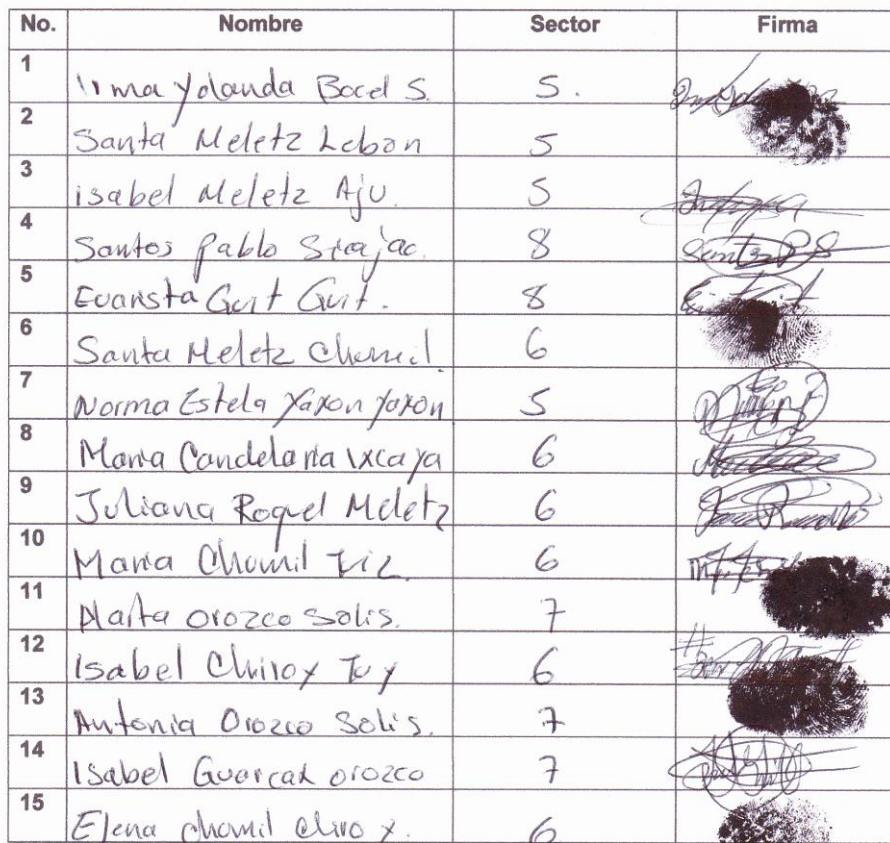 No. Nombre Sector Firma
1 Irma Yolanda Bocel S. 5.
2 Santa Meletz Lebon 5
3 isabel Meletz Aju. 5
4 Santos Pablo 8
5 Evarista Guit Guit. 8
6 Santa Meletz Chumil 6
7 Norma Estela Yaxon Yaxon 5
8 Maria Candelaria Ixcaya 6
9 Juliana Roquel Meletz 6
10 Maria Chumil Tiz 6
11 Marta Orozco Solis. 7
12 Isabel Chiroy Tuy 6
13 Antonia Orozco Solis. 7
14 Isabel Guarcax orozco 7
15 Elena chomil chiroy. 6